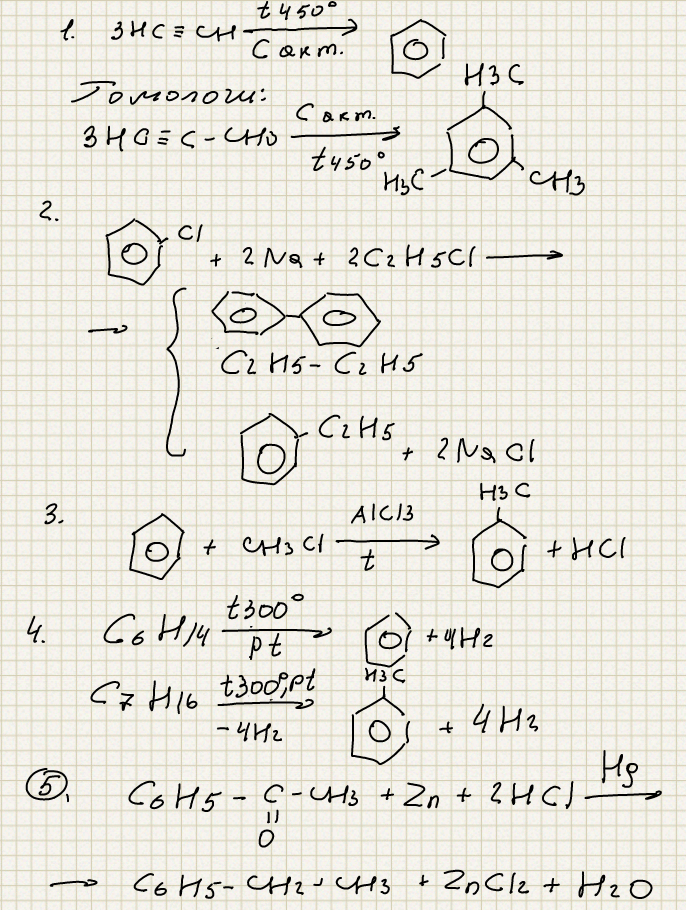 1. 3HC ≡ CH t450° C акт.
H3C
Гомологи:
3HC ≡ C - CH3 C акт. t450° H3C CH3
2.
Cl + 2Na + 2C2H5Cl →
→ {
C2H5 - C2H5
C2H5 + 2NaCl
3. + CH3Cl AlCl3 t → H3C + HCl
4. C6H14 t300° Pt → + 4H2
C7H16 t300°, Pt - 4H2 → H3C + 4H2
5. C6H5 - C - CH3 + Zn + 2HCl Hg →
||
O
→ C6H5 - CH2 - CH3 + ZnCl2 + H2O